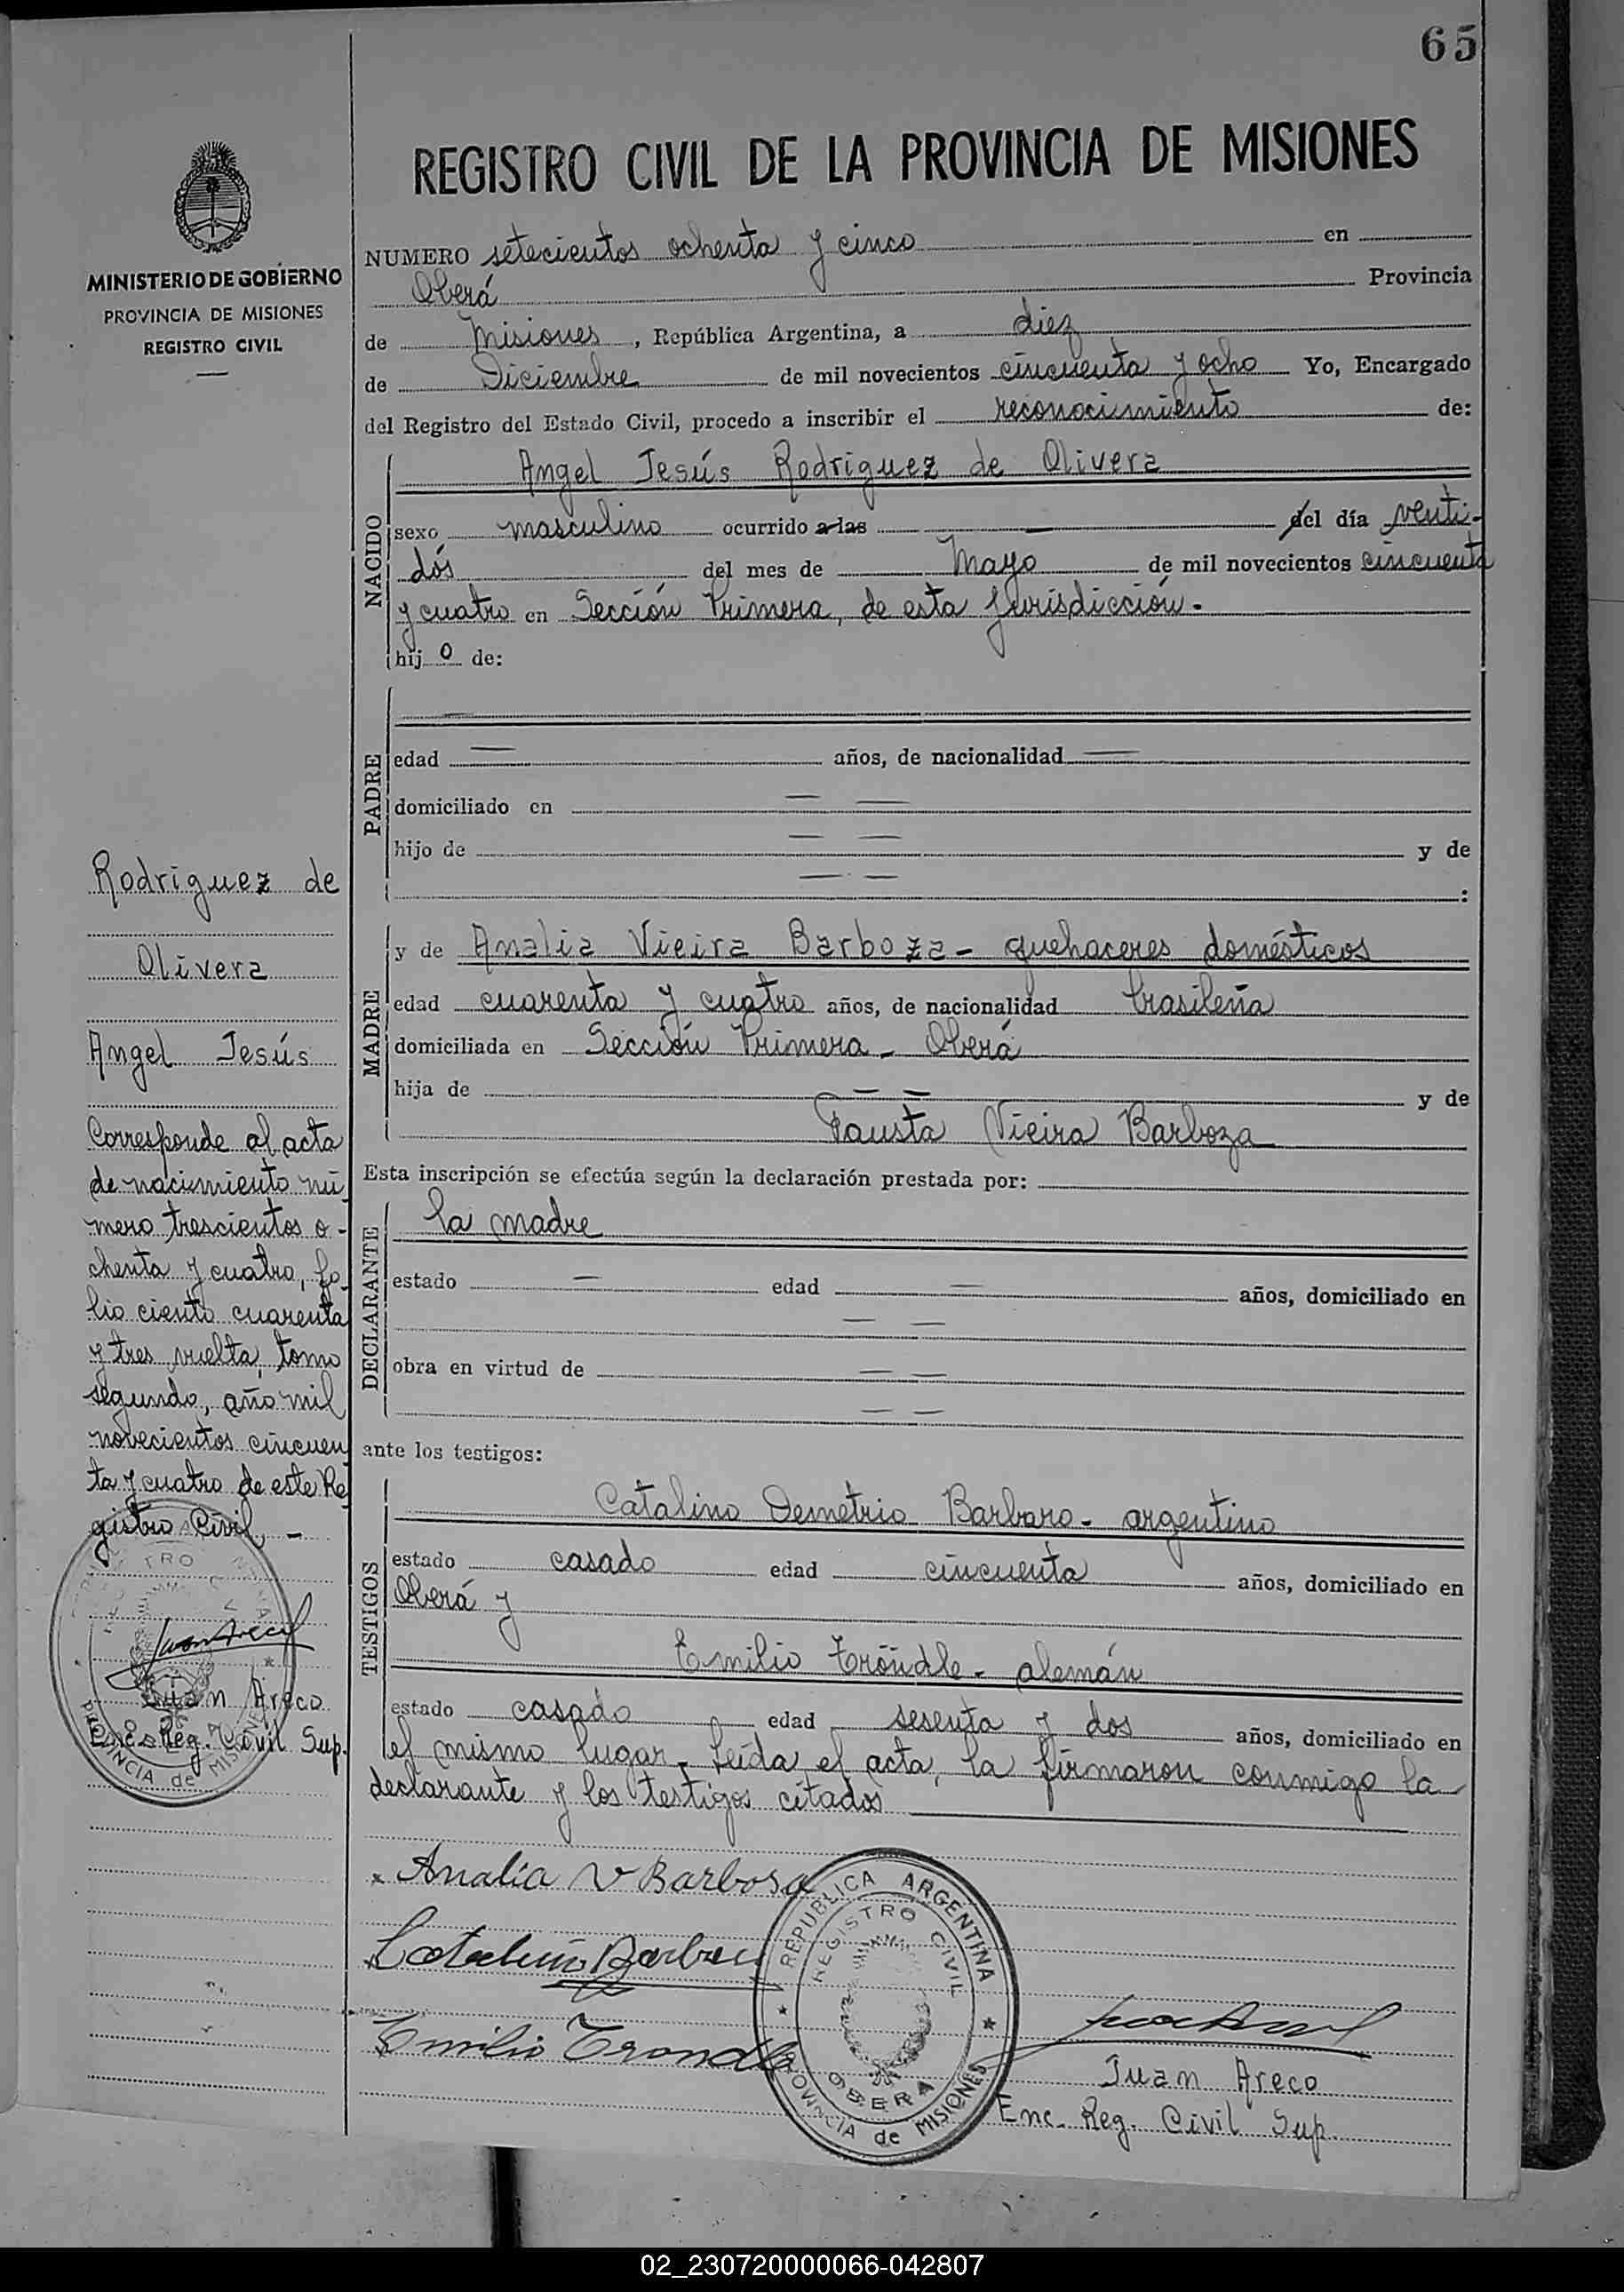 65
REGISTRO CIVIL DE LA PROVINCIA DE MISIONES
MINISTERIO DE GOBIERNO
PROVINCIA DE MISIONES
REGISTRO CIVIL
NUMERO setecientos ochenta y cinco en
Oberá Provincia
de Misiones, República Argentina, a diez
de Diciembre de mil novecientos cincuenta y ocho Yo, Encargado
del Registro del Estado Civil, procedo a inscribir el reconocimiento de:
NACIDO
Angel Jesús Rodriguez de Olivera
sexo masculino ocurrido a las — del día venti-
dós del mes de Mayo de mil novecientos cincuenta
y cuatro en Sección Primera, de esta Jurisdicción.-
hijo de:
PADRE
—
edad — años, de nacionalidad —
domiciliado en — —
hijo de — — y de
— — :
MADRE
y de Analia Vieira Barboza - quehaceres domésticos
edad cuarenta y cuatro años, de nacionalidad brasileña
domiciliada en Sección Primera - Oberá
hija de — — y de
Fausta Vieira Barboza
Esta inscripción se efectúa según la declaración prestada por:
DECLARANTE
la madre
estado — edad — años, domiciliado en
— —
obra en virtud de — —
— —
ante los testigos:
TESTIGOS
Catalino Demetrio Barbaro - argentino
estado casado edad cincuenta años, domiciliado en
Oberá y
Emilio Tröndle - alemán
estado casado edad sesenta y dos años, domiciliado en
el mismo lugar. Leída el acta, la firmaron conmigo la
declarante y los testigos citados
Analia V Barbosa
Emilio Trondle
Juan Areco
Enc. Reg. Civil Sup.
REPUBLICA ARGENTINA
REGISTRO CIVIL
OBERA
PROVINCIA de MISIONES
Rodriguez de
Olivera
Angel Jesús
Corresponde al acta
de nacimiento nú
mero trescientos o-
chenta y cuatro, fo
lio ciento cuarenta
y tres vuelta, tomo
segundo, año mil
novecientos cincuen
ta y cuatro de este Re
gistro Civil. -
Juan Areco
Enc. Reg. Civil Sup.
PROVINCIA de MISIONES
02_230720000066-042807